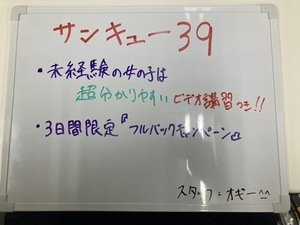 サンキュー39
・未経験の女の子は
超分かりやすいビデオ講習つき!!
・3日間限定『フルバックキャンペーン』
スタッフ:オギー^^